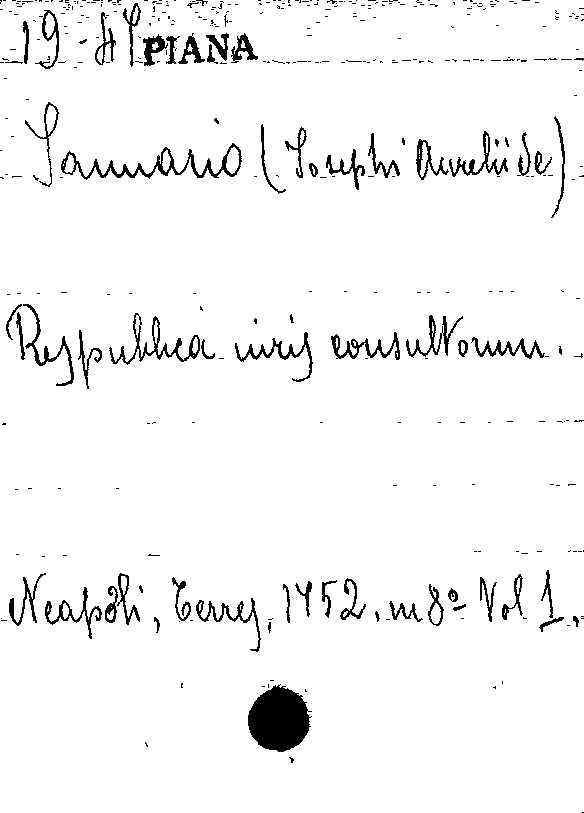 19-47 PIANA
Januario (Josephi Aurelii de)
Respublica iuris consultorum.
Neapoli, Terres, 1752. in 8º Vol 1.